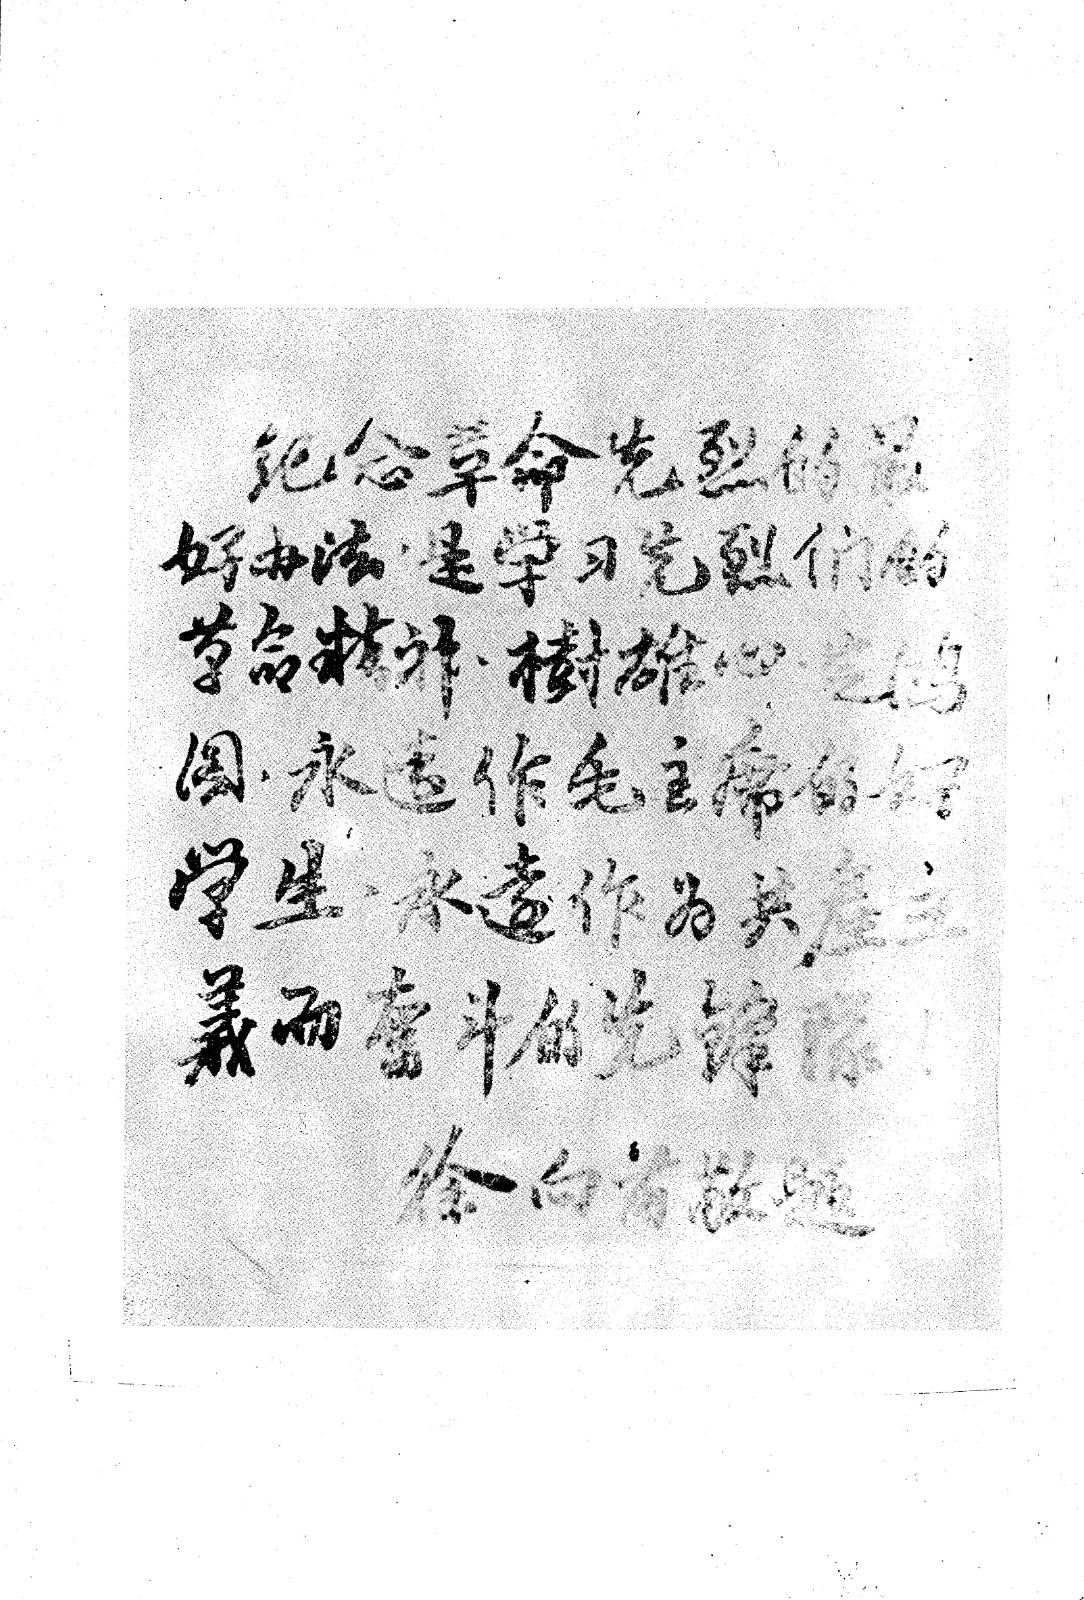 纪念革命先烈的最
好办法，是学习先烈们的
革命精神，樹雄心，立鸿
图，永远作毛主席的好
学生，永远作为共產主
義而奮斗的先锋隊
徐向前敬题